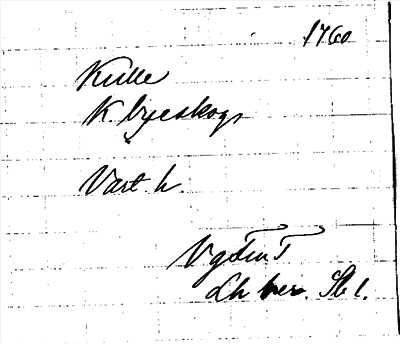 1760
Kulle
K. byeskogs
Vart h.
Vg Fin T
Lh ber. Sb 1.